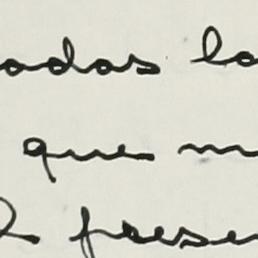 adas la
que m
presen